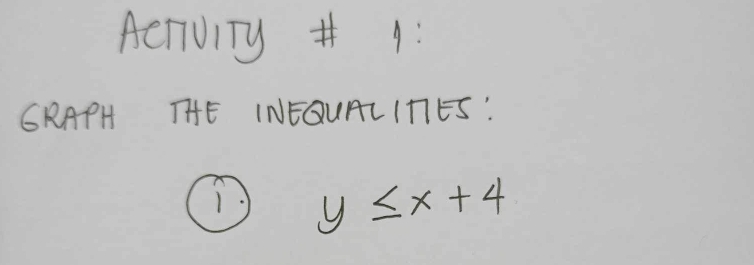 ACTIVITY # 1:
GRAPH THE INEQUALITIES:
1. y ≤ x + 4